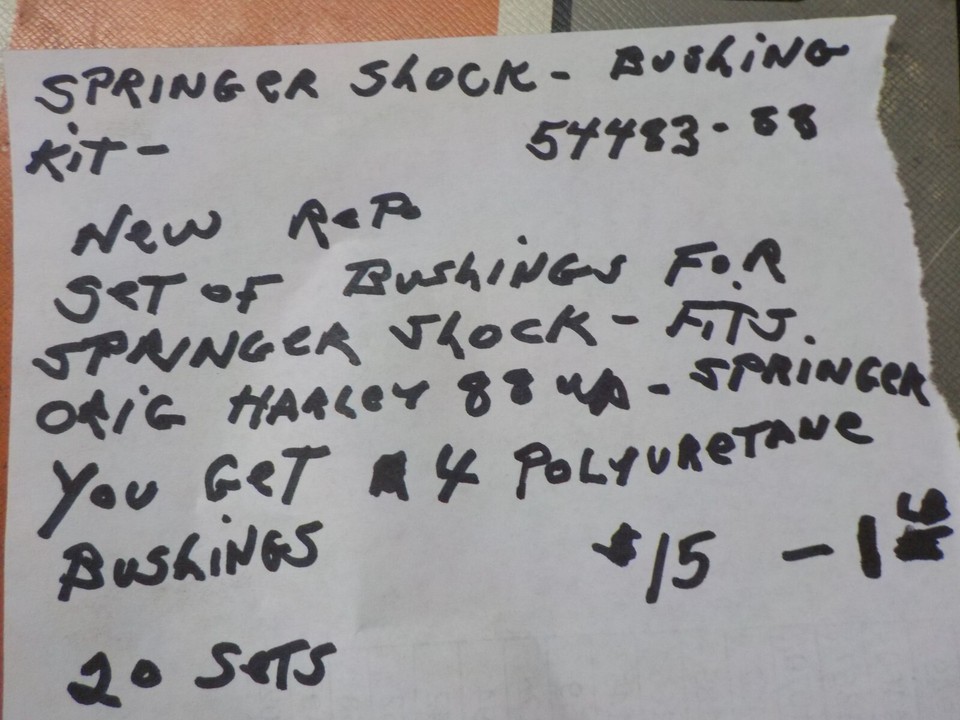 SPRINGER SHOCK - BUSHING
KIT - 54483-88
NEW REPO
SET OF BUSHINGS FOR
SPRINGER SHOCK - FITS.
ORIG HARLEY 88 UP - SPRINGER
YOU GET 4 POLYURETANE
BUSHINGS $15 - 1
20 SETS